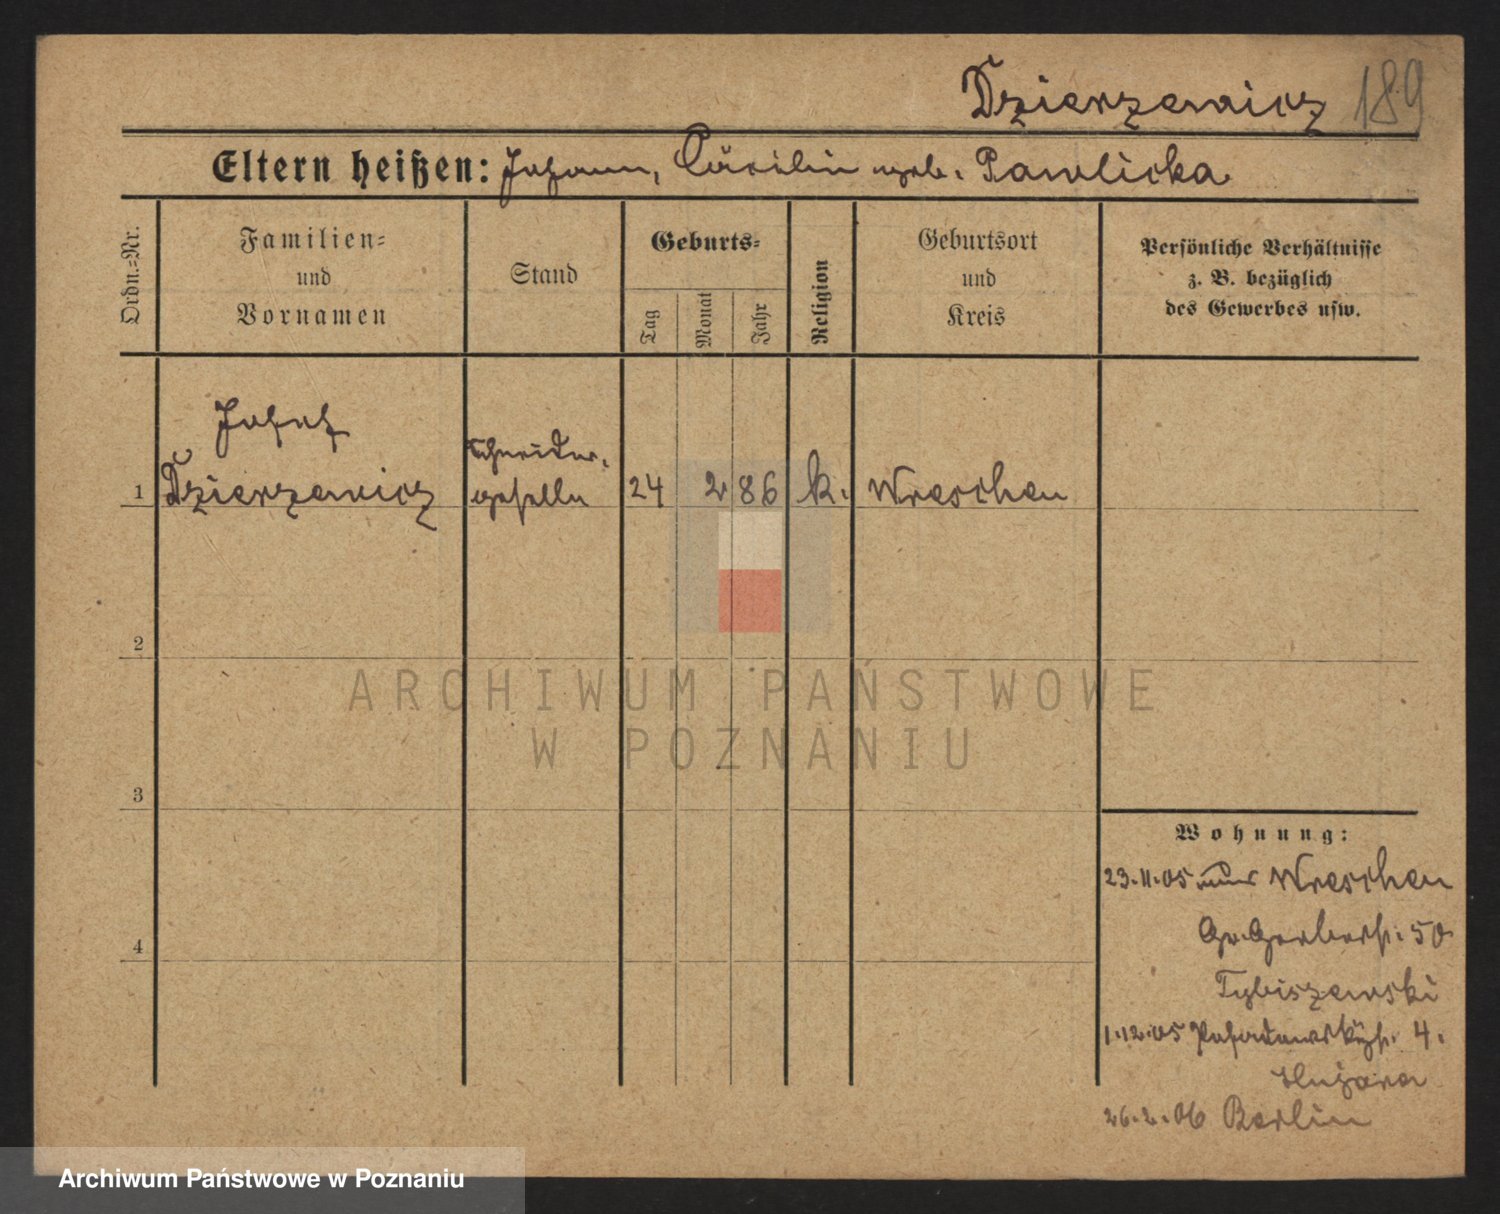 Dzierzewicz 189
Eltern heißen: Johann, Cäcilie geb. Pawlicka
Ordn.=Nr.
Familien=
und
Vornamen
Stand
Geburts=
Tag
Monat
Jahr
Religion
Geburtsort
und
Kreis
Persönliche Verhältnisse
z. B. bezüglich
des Gewerbes usw.
Josef
Schneider-
1 Dzierzewicz geselle 24 2 86 k. Wreschen
2
3
4
Wohnung:
23.11.05 Wreschen
Gr. Gerberstr. 50
Tybiszewski
1.12.05 4.
26.2.06 Berlin
ARCHIWUM PAŃSTWOWE
W POZNANIU
Archiwum Państwowe w Poznaniu